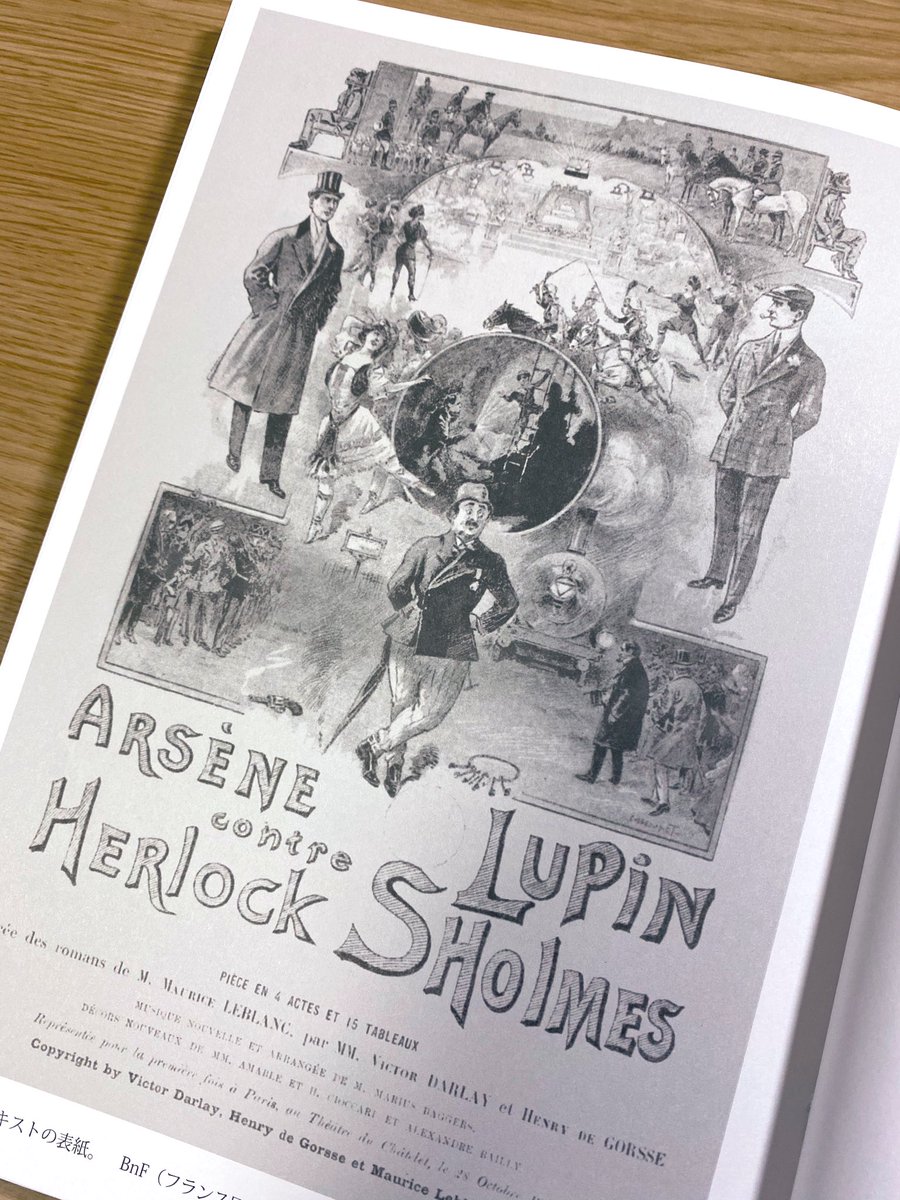 ARSÈNE LUPIN
contre
HERLOCK SHOLMES
PIÈCE EN 4 ACTES ET 15 TABLEAUX
des romans de M. MAURICE LEBLANC, par MM. VICTOR DARLAY et HENRY DE GORSSE
MUSIQUE NOUVELLE ET ARRANGÉE DE M. MARIUS BAGGERS
DÉCORS NOUVEAUX DE MM. AMABLE ET H. CIOCCARI ET ALEXANDRE BAILLY
Représentée pour la première fois à Paris, au Théâtre du Châtelet, le 28 Octobre
Copyright by Victor Darlay, Henry de Gorsse et Maurice
キストの表紙。 BnF（フランス